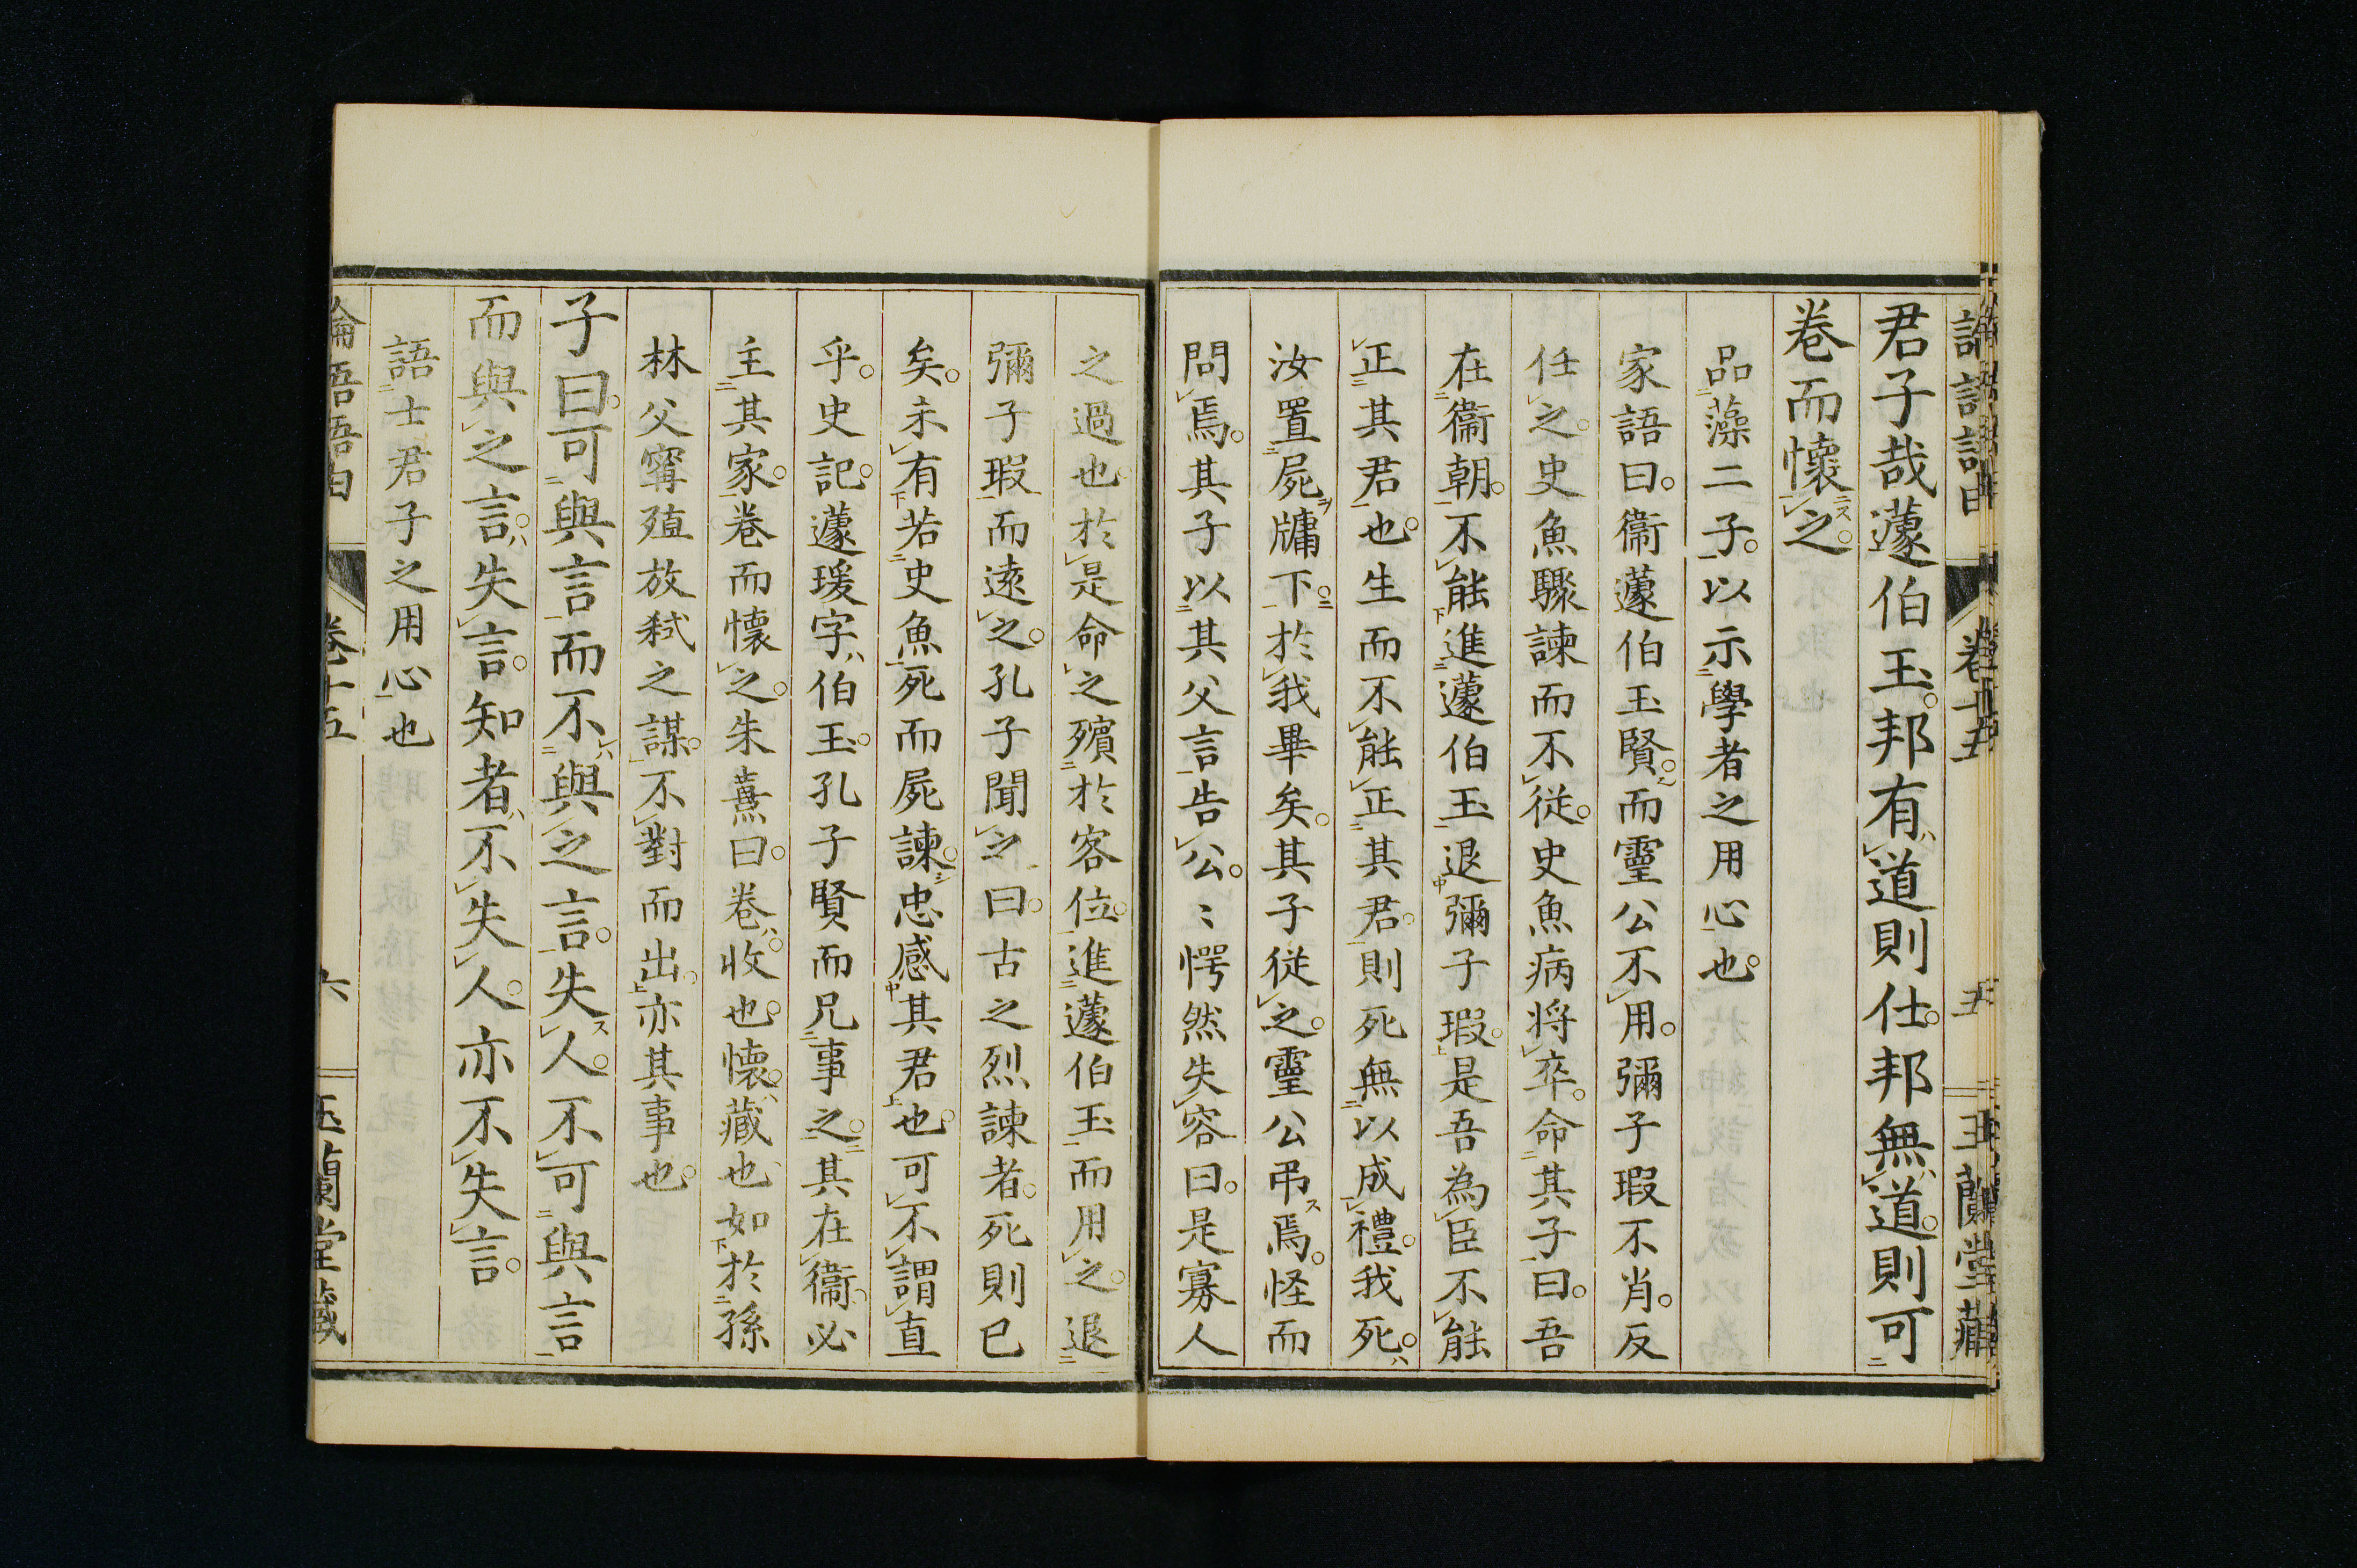 君子哉蘧伯玉。邦有道則仕。邦無道。則可
卷而懷之。
品藻二子。以示學者之用心也。
家語曰。衞蘧伯玉賢。而靈公不用。彌子瑕不肖。反
任之。史魚驟諫而不從。史魚病將卒。命其子曰。吾
在衞朝。不能進蘧伯玉退彌子瑕。是吾為臣不能
正其君也。生而不能正其君。則死無以成禮。我死。
汝置屍牖下。於我畢矣。其子從之。靈公弔焉。怪而
問焉。其子以其父言告公。〻愕然失容曰。是寡人
之過也。於是命之殯於客位。進蘧伯玉而用之。退
彌子瑕而遠之。孔子聞之曰。古之烈諫者。死則已
矣。未有若史魚死而屍諫。忠感其君也。可不謂直
乎。史記。蘧瑗字伯玉。孔子賢而兄事之。其在衞。必
主其家。卷而懷之。朱熹曰。卷。收也。懷。藏也如於孫
林父甯殖放弒之謀。不對而出。亦其事也。
子曰。可與言而不與之言。失人。不可與言
而與之言。失言。知者不失人。亦不失言。
語士君子之用心也
論語語由 卷十五 六 玉蘭堂藏